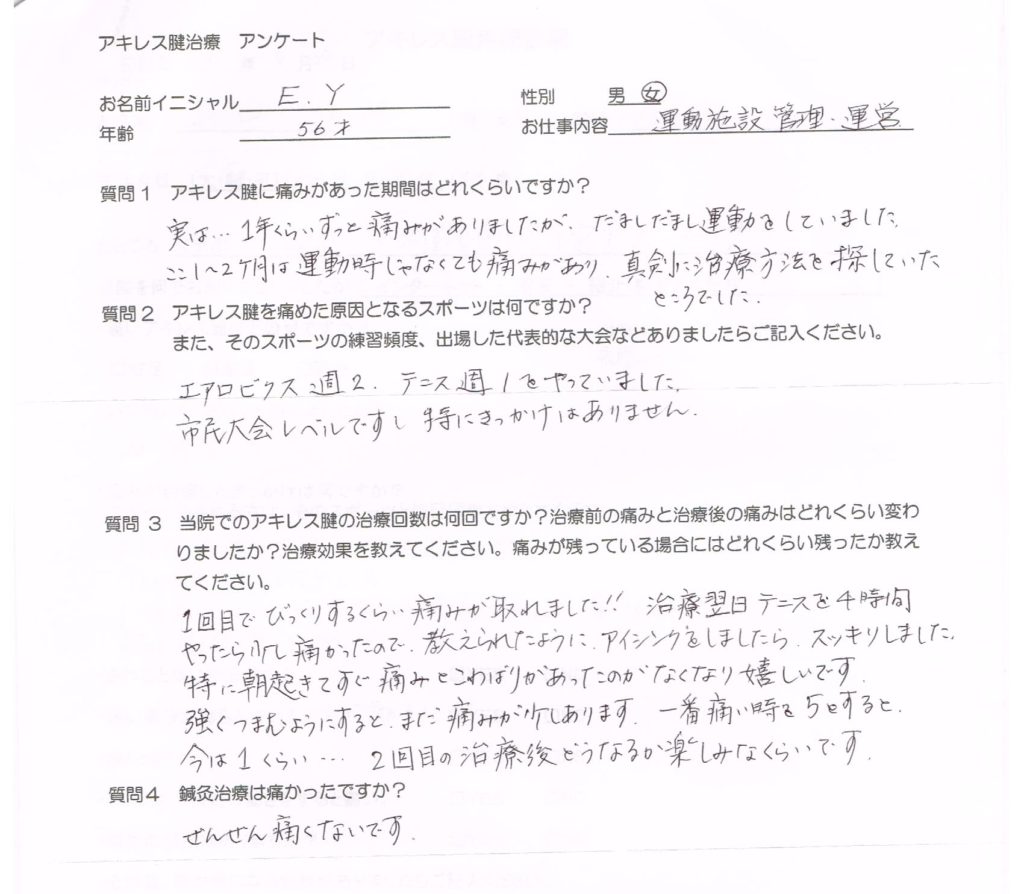 アキレス腱治療　アンケート
お名前イニシャル　E.Y　性別　男　女
年齢　56才　お仕事内容　運動施設管理・運営
質問1　アキレス腱に痛みがあった期間はどれくらいですか？
実は… 1年くらいずっと痛みがありましたが、だましだまし運動をしていました。
ここ1〜2ヶ月は運動時じゃなくても痛みがあり、真剣に治療方法を探していた
ところでした。
質問2　アキレス腱を痛めた原因となるスポーツは何ですか？
また、そのスポーツの練習頻度、出場した代表的な大会などありましたらご記入ください。
エアロビクス週2、テニス週1をやっていました。
市民大会レベルですし特にきっかけはありません。
質問 3　当院でのアキレス腱の治療回数は何回ですか？治療前の痛みと治療後の痛みはどれくらい変わ
りましたか？治療効果を教えてください。痛みが残っている場合にはどれくらい残ったか教え
てください。
1回目でびっくりするくらい痛みが取れました!! 治療翌日テニスを4時間
やったら少し痛かったので、教えられたように、アイシングをしましたら、スッキリしました。
特に朝起きてすぐ痛みとこわばりがあったのがなくなり嬉しいです。
強くつまむようにすると、まだ痛みが少しあります。一番痛い時を5とすると、
今は1くらい… 2回目の治療後どうなるか楽しみなくらいです。
質問4　鍼灸治療は痛かったですか？
ぜんぜん痛くないです。